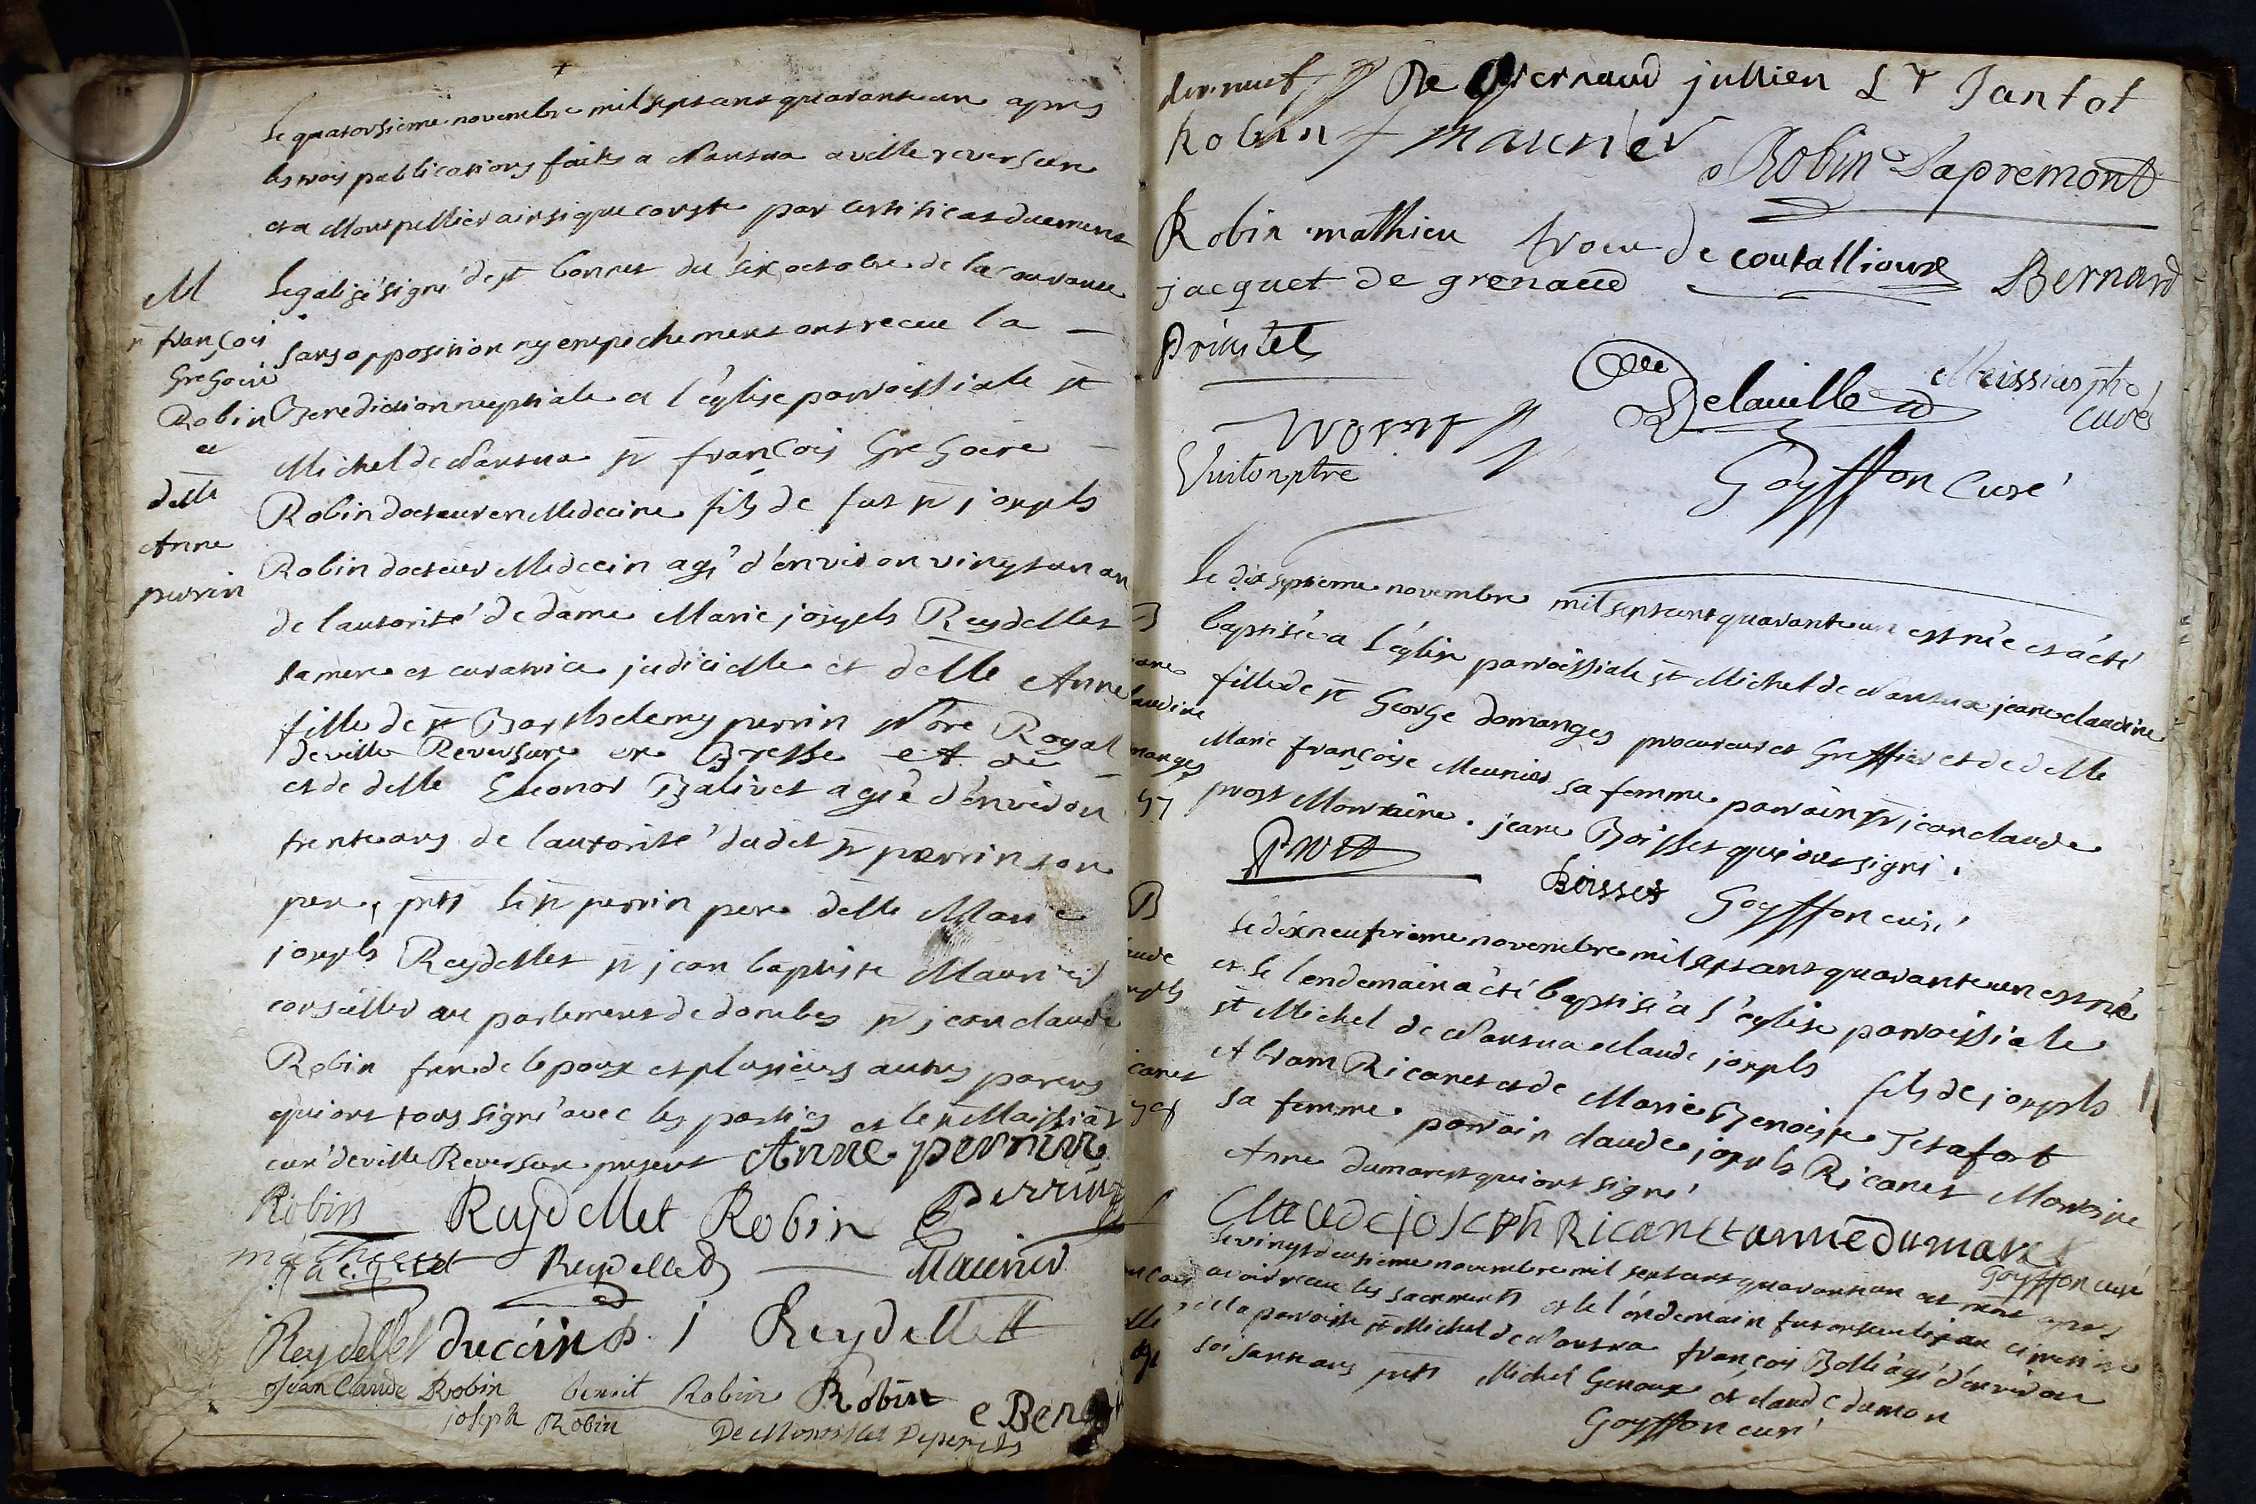 Le quatorsieme novembre mil sept cent quarante un apres
les trois publications faites a Nantua a ville reversure
et a Montpellier ainsi que conste par certificat duement
M
legalisé signé de st bonnet du six octobre de la courante
sr françois
sans opposition ny empechement ont receu la
Gregoire
Robin
Benediction nuptiale a l'église parroissiale st
et
Michel de Nantua sr françois Gregoire
delle
Robin docteur en Medecine fils de fut sr joseph
Anne
Robin docteur Medecin agé d'environ vingt un an
perrin
de l'autorité de dame Marie joseph Reydellet
sa mere et curatrice judicielle et delle Anne
fille de sr Barthelemy perrin Nore Royal
de ville Reversure en Bresse et de
et de delle Eleonor Balivet agée d'environ
trente ans de l'autorité dudit sr perrin son
pere, pnts le sr perrin pere delle Marie
joseph Reydellet sr jean baptiste Maurier
conseiller au parlement de dombes sr jean claude
Robin frere de lepoux et plusieurs autres parens
qui ont tous signé avec les parties et le sr Maissiat
curé de ville Reversure present Anne perrin
Robin Reydellet Robin Perrin
mathieu
jacquet Reydellet Maurier
Reydellet ducein j Reydellet
jean Claude Robin benoit Rabin Robin e Ber
joseph Robin De Monillet
De Grenaud jullien Lt Jantot
Robin Maurier
Robin Dapremont
Robin mathieu de coutallioux Bernard
jacquet de grenaud
Delaville Meissiat ptre
curé
Vuiton ptre
Goyffon Curé
Le dix septieme novembre mil sept cent quarante un est née et a été
B
baptisée a l'église parroissiale st Michel de Nantua jeane claudine
fille de sr George domanges procureur et Greffier et de delle
Marie françoise Meunier sa femme parrain sr jean claude
prost Marraine jeane Boisset qui ont signé.
Prost
Boisset Goyffon curé
B
Le dix neufvieme novembre mil sept cent quarante un est né
et le lendemain a été baptisé a l'église parroissiale
st Michel de Nantua claude joseph fils de joseph
Abram Ricanet et de Marie Benoiste Tetafort
sa femme parrain claude joseph Ricanet Marraine
Anne dumarest qui ont signé
Claude joseph Ricanet anne dumarest
Goyffon curé
Le vingt deuxieme novembre mil sept cent quarante un est mort apres
avoir receu les sacrements et le l'endemain fut enseveli au cimetiere
de la parroisse st Michel de Nantua françois Bolle agé d'environ
soissante ans pnts Michel Genoux et claude dumon
Goyffon curé